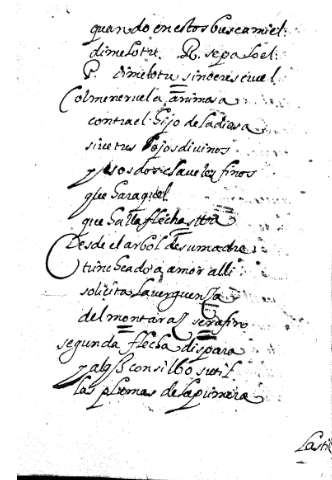 quando en estos busca miel:
dimelo tu. R. sepa loel:
P. dimelo tu si no eres cruel
Colmeneruela animosa
contra el hijo de la diosa
si ve tus ojos divinos
y esos dos claveles finos
que hara
que hara la flecha
Desde el arbol de su madre
trincheado a amor alli
soliçita la verguenza
del montaraz serafin
segunda flecha dispara
y al silbo sutil
las plumas de la primera